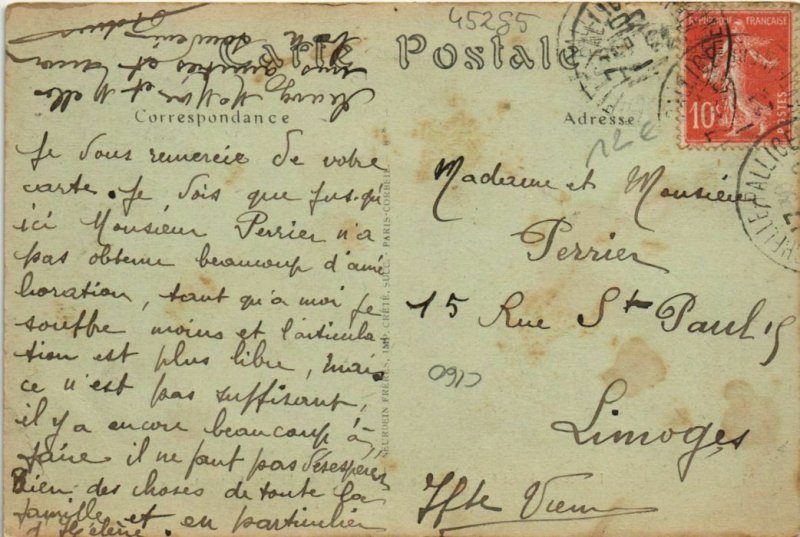 45285
Carte Postale
Correspondance
Adresse
RÉPUBLIQUE FRANÇAISE
10c
POSTES
12 €
Je vous remercie de votre
carte. Je vois que jusqu'
ici Monsieur Perrier n'a
pas obtenu beaucoup d'amé
lioration, tant qu'à moi je
souffre moins et l'articula
tion est plus libre, mais
ce n'est pas suffisant,
il y a encore beaucoup à
faire il ne faut pas désespérer
Bien des choses de toute la
famille et en particulier
d'Hélène.
amitiés et
souvenir
NEURDEIN FRÈRES, IMP. CRÉTÉ, SUCC. PARIS-CORBEIL
Madame et Monsieur
Perrier
15 Rue St Paul 15
Limoges
Hte Vienne
0913